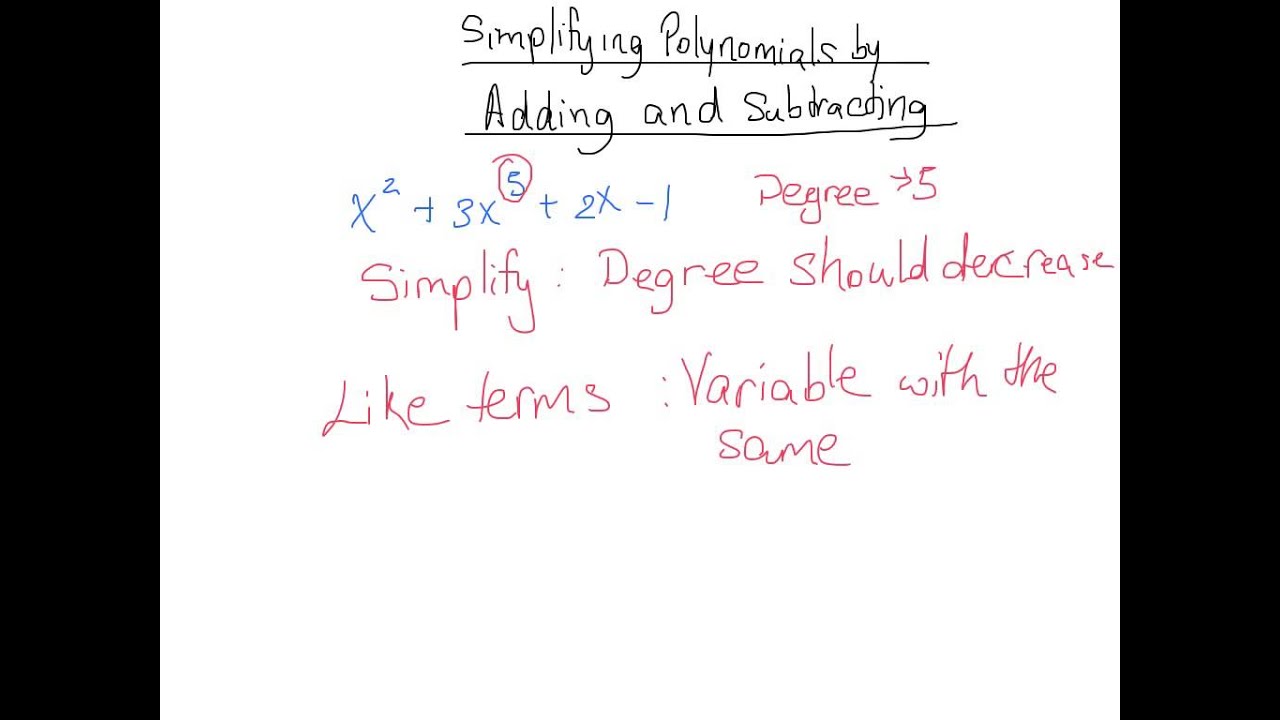 Simplifying Polynomials by
Adding and Subtracting
x² + 3x⁵ + 2x - 1 Degree → 5
Simplify : Degree should decrease
Like terms : Variable with the
same